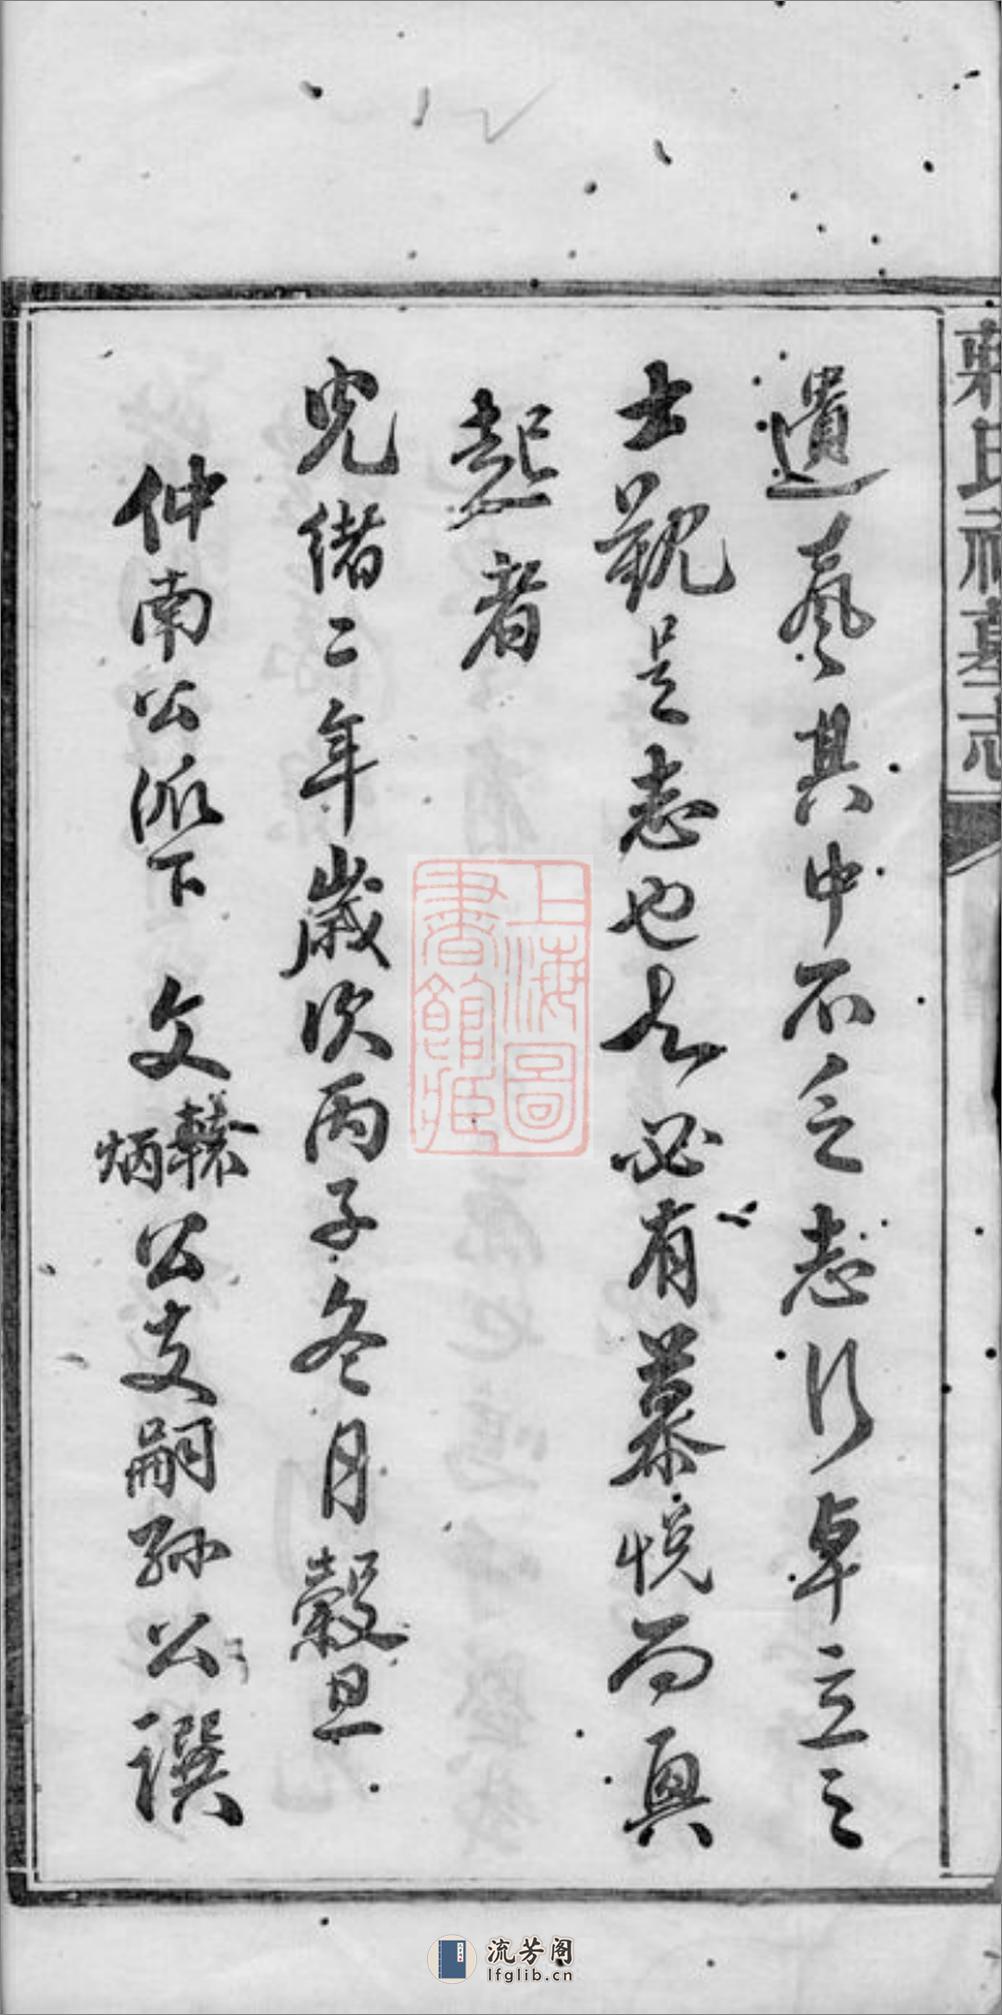 遺風其中不乏志行卓立之
士觀是志也者必有慕悅而興
起者
光緒二年歲次丙子冬月穀旦
仲南公派下 文轅炳公支嗣孫公譔
氏祠墓志
上海圖書館藏
流芳阁
lfglib.cn